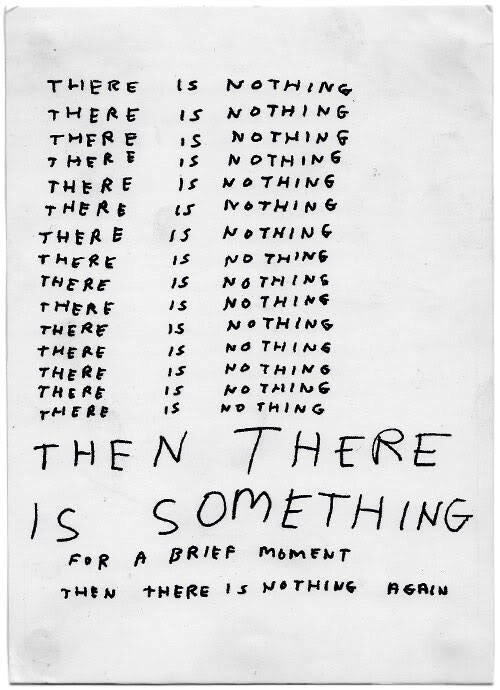 THERE IS NOTHING
THERE IS NOTHING
THERE IS NOTHING
THERE IS NOTHING
THERE IS NOTHING
THERE IS NOTHING
THERE IS NOTHING
THERE IS NOTHING
THERE IS NOTHING
THERE IS NOTHING
THERE IS NOTHING
THERE IS NOTHING
THERE IS NOTHING
THERE IS NOTHING
THERE IS NOTHING
THEN THERE
IS SOMETHING
FOR A BRIEF MOMENT
THEN THERE IS NOTHING AGAIN